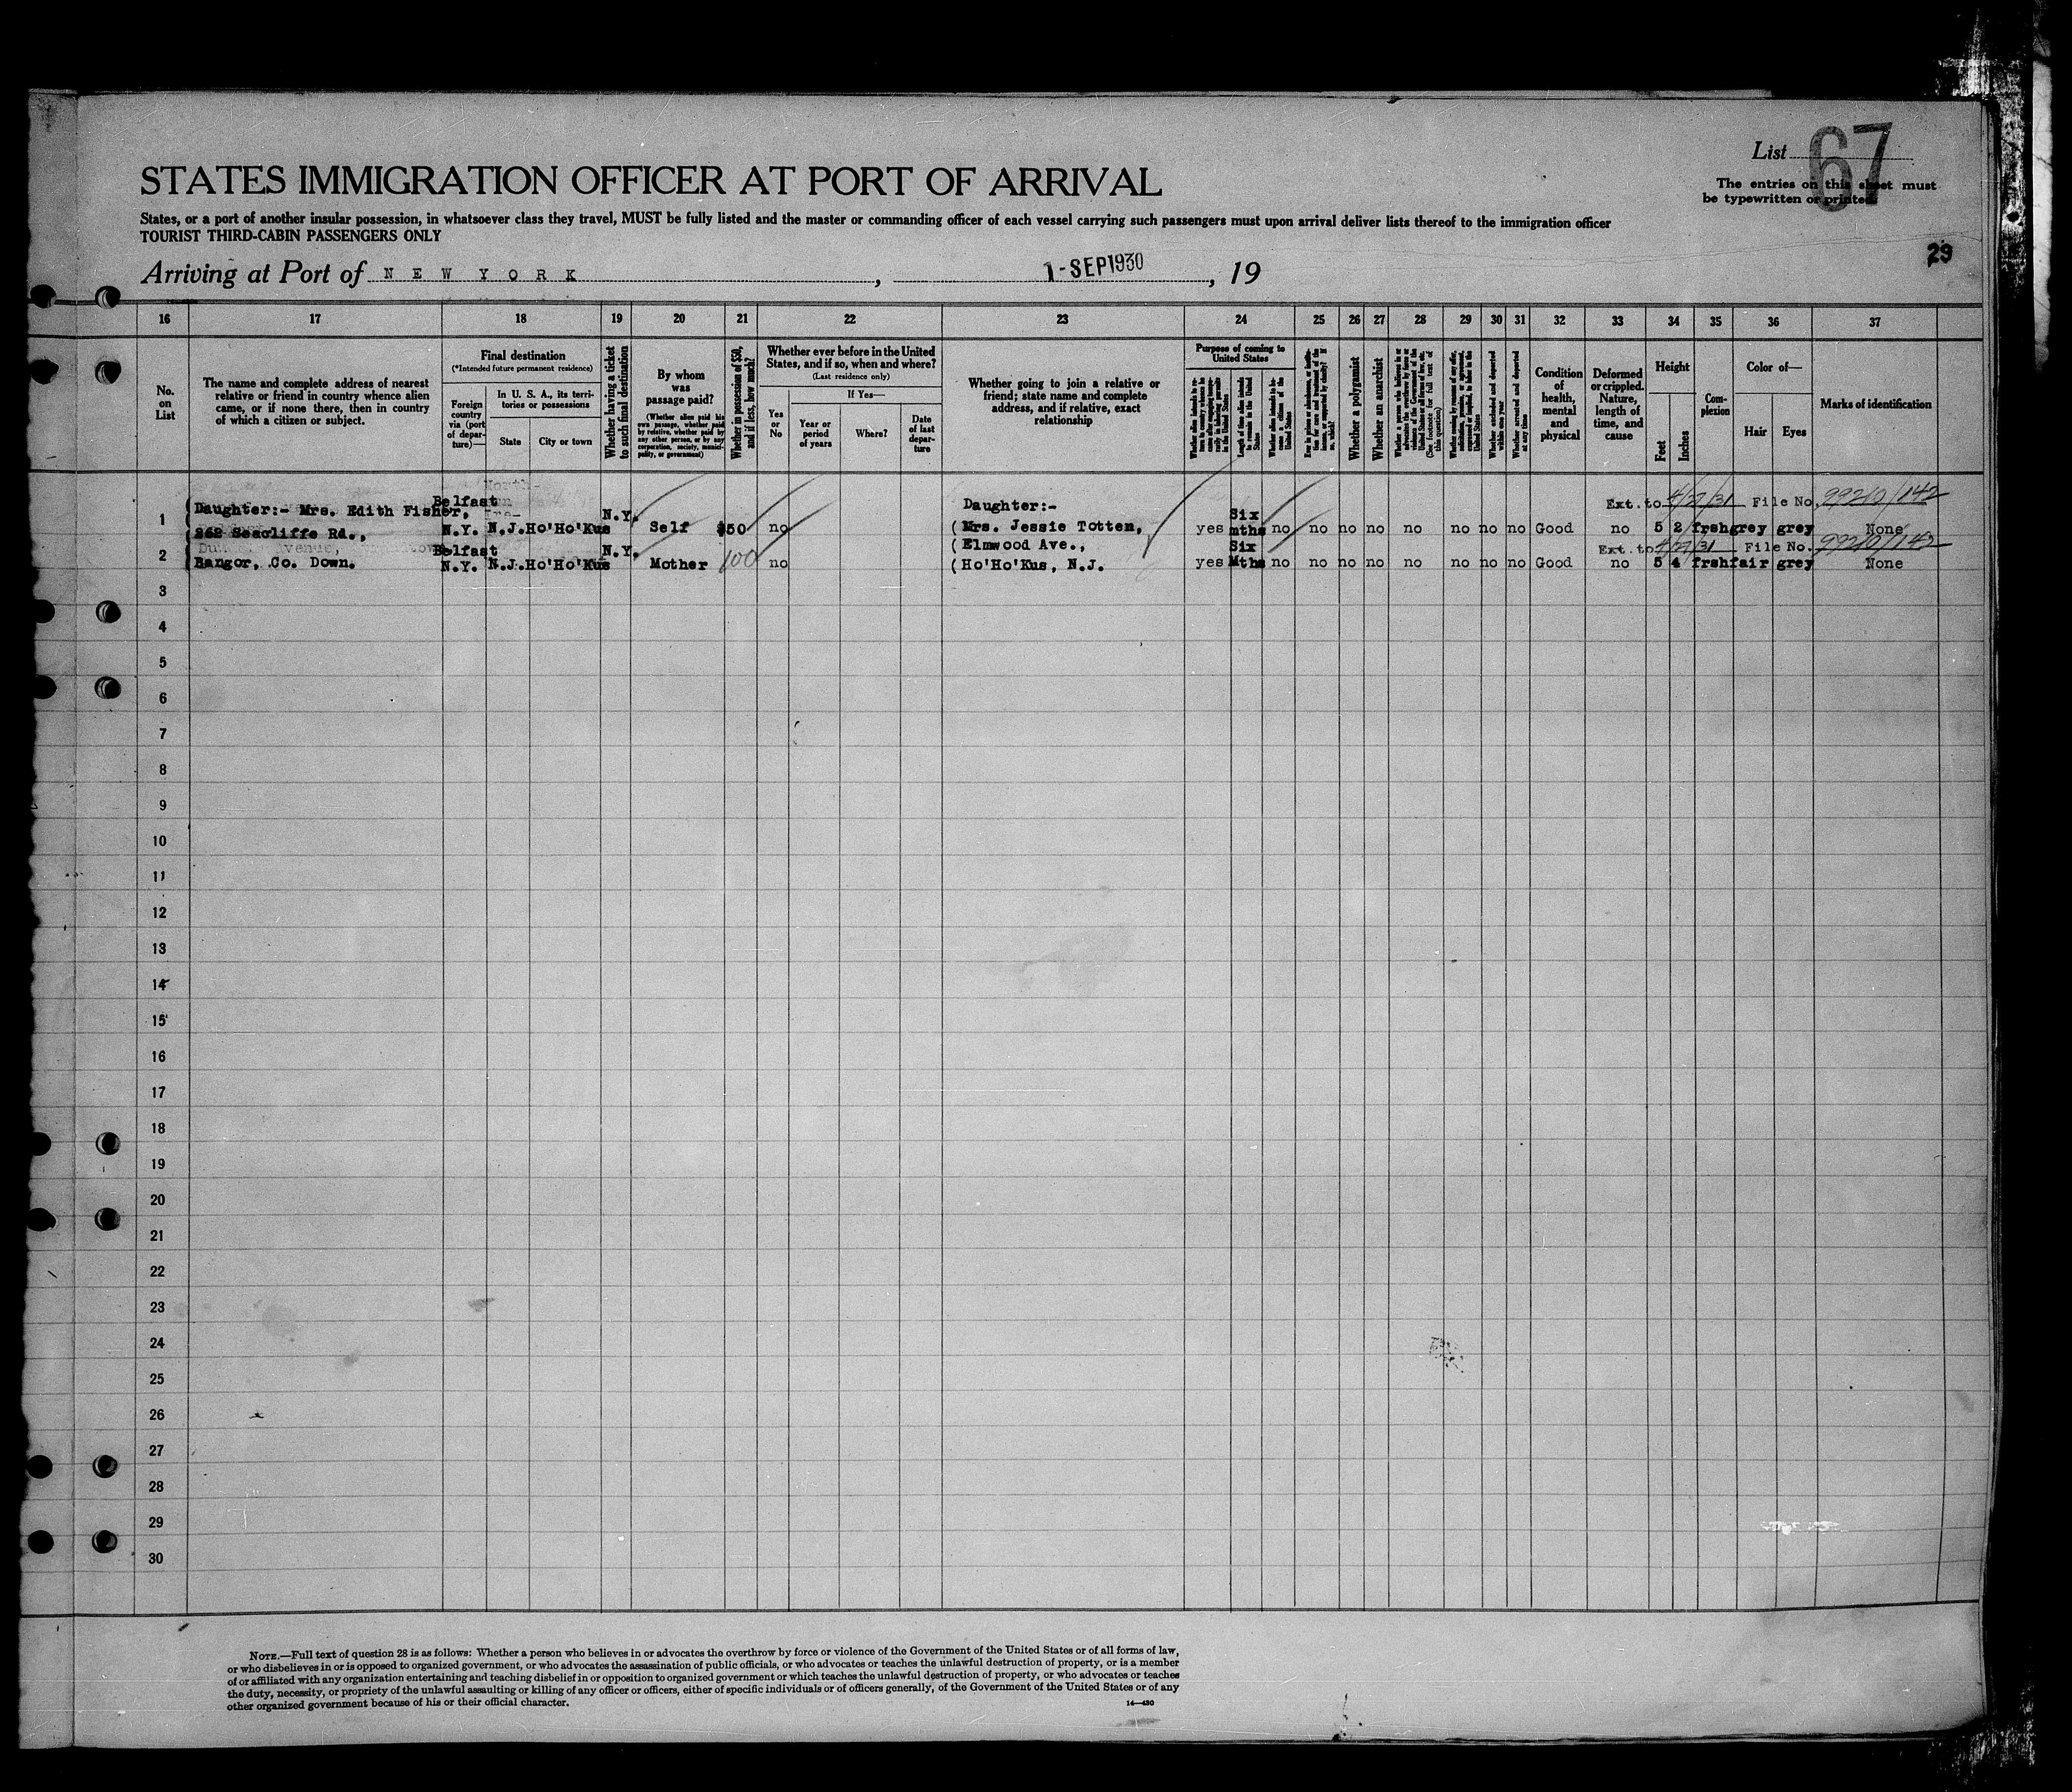 List 67
The entries on this sheet must
be typewritten or printed.
STATES IMMIGRATION OFFICER AT PORT OF ARRIVAL
States, or a port of another insular possession, in whatsoever class they travel, MUST be fully listed and the master or commanding officer of each vessel carrying such passengers must upon arrival deliver lists thereof to the immigration officer
TOURIST THIRD-CABIN PASSENGERS ONLY
29
Arriving at Port of NEW YORK, 1-SEP1930, 19
16 17 18 19 20 21 22 23 24 25 26 27 28 29 30 31 32 33 34 35 36 37
No. on List
The name and complete address of nearest
relative or friend in country whence alien
came, or if none there, then in country
of which a citizen or subject.
Final destination
(*Intended future permanent residence)
Foreign country via (port of departure)—
In U. S. A., its territories or possessions
State
City or town
Whether having a ticket to such final destination
By whom was passage paid?
(Whether alien paid his own passage, whether paid by relative, whether paid by any other person, or by any corporation, society, municipality, or government)
Whether in possession of $50, and if less, how much?
Whether ever before in the United States, and if so, when and where?
(Last residence only)
Yes or No
If Yes—
Year or period of years
Where?
Date of last departure
Whether going to join a relative or
friend; state name and complete
address, and if relative, exact
relationship
Purpose of coming to United States
Length of time alien intends to remain in the United States
Whether alien intends to become a citizen of the United States
Whether a polygamist
Whether an anarchist
Whether excluded and deported within one year
Whether arrested and deported at any time
Condition of health, mental and physical
Deformed or crippled. Nature, length of time, and cause
Height
Feet
Inches
Complexion
Color of—
Hair
Eyes
Marks of identification
Ext. to 4/27/31 File No. 99210/142
1 (Daughter:- Mrs. Edith Fisher, Belfast N.Y. N.J. Ho'Ho'Kus N.Y. Self $50 no Daughter:- (Mrs. Jessie Totten, yes Six mths no no no no no no no no Good no 5 2 frsh grey grey None
262 Seacliffe Rd., (Elmwood Ave.,
Ext. to 4/27/31 File No. 99210/142
2 (Bangor, Co. Down. Belfast N.Y. N.J. Ho'Ho'Kus N.Y. Mother 100 no (Ho'Ho'Kus, N.J. yes Six Mths no no no no no no no no Good no 5 4 frsh fair grey None
3
4
5
6
7
8
9
10
11
12
13
14
15
16
17
18
19
20
21
22
23
24
25
26
27
28
29
30
NOTE.—Full text of question 28 is as follows: Whether a person who believes in or advocates the overthrow by force or violence of the Government of the United States or of all forms of law,
or who disbelieves in or is opposed to organized government, or who advocates the assassination of public officials, or who advocates or teaches the unlawful destruction of property, or is a member
of or affiliated with any organization entertaining and teaching disbelief in or opposition to organized government or which teaches the unlawful destruction of property, or who advocates or teaches
the duty, necessity, or propriety of the unlawful assaulting or killing of any officer or officers, either of specific individuals or of officers generally, of the Government of the United States or of any
other organized government because of his or their official character.
14—430